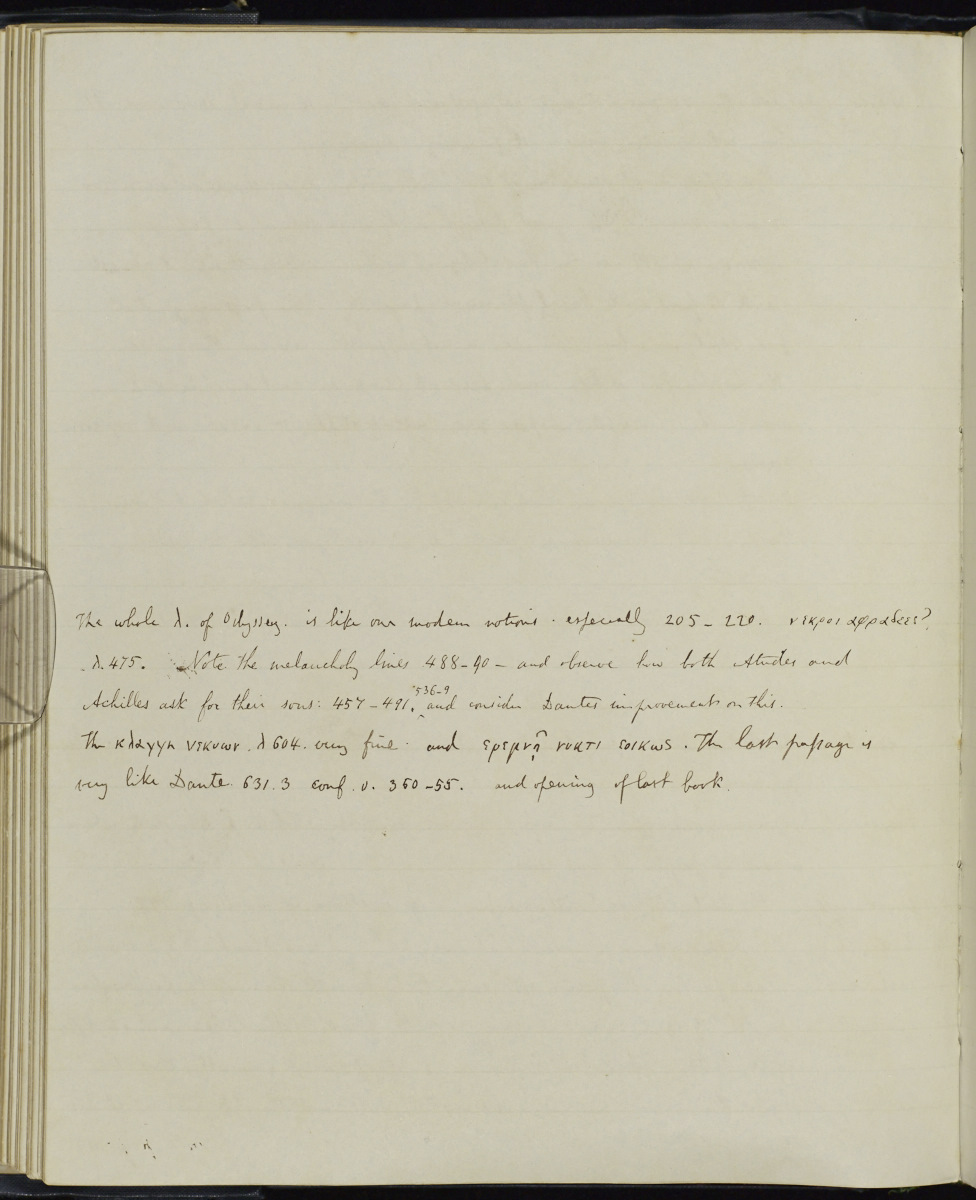 The whole λ. of Odyssey. is like our modern notions. especially 205-220. νεκροι αφραδεες?
λ. 475. Note the melancholy lines 488-90 - and observe how both Atrides and
Achilles ask for their sons: 457-491. 536-9 and consider Dantes improvement on this.
The κλαγγη νεκυων. λ 604. very fine. and ερεμνῃ νυκτι εοικως. The last passage is
very like Dante. 631.3 conf. υ. 350-55. and opening of last book.